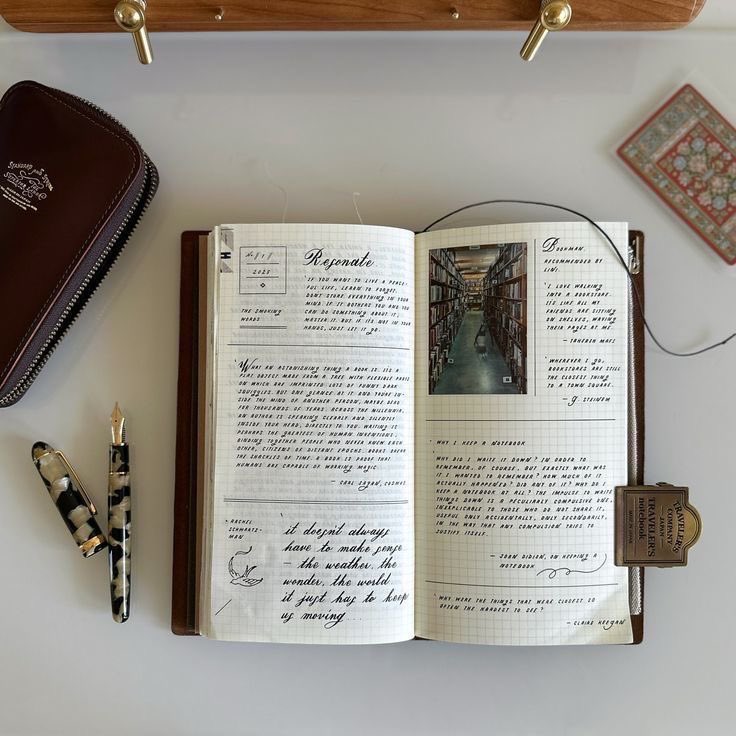 STANDARD AND STRANGE
No. 818
2023
THE SMOKING
WORDS
Resonate
'IF YOU WANT TO LIVE A PEACE-
FUL LIFE, LEARN TO FORGET.
DONT STORE EVERYTHING IN YOUR
MIND. IF IT BOTHERS YOU AND YOU
CAN DO SOMETHING ABOUT IT,
MASTER IT. BUT IF ITS NOT IN YOUR
HANDS, JUST LET IT GO.
'WHAT AN ASTONISHING THING A BOOK IS. ITS A
FLAT OBJECT MADE FROM A TREE WITH FLEXIBLE PARTS
ON WHICH ARE IMPRINTED LOTS OF FUNNY DARK
SQUIGGLES. BUT ONE GLANCE AT IT AND YOURE IN-
SIDE THE MIND OF ANOTHER PERSON, MAYBE DEAD
FOR THOUSANDS OF YEARS. ACROSS THE MILLENNIA,
AN AUTHOR IS SPEAKING CLEARLY AND SILENTLY
INSIDE YOUR HEAD, DIRECTLY TO YOU. WRITING IS
PERHAPS THE GREATEST OF HUMAN INVENTIONS,
BINDING TOGETHER PEOPLE WHO NEVER KNEW EACH
OTHER, CITIZENS OF DISTANT EPOCHS. BOOKS BREAK
THE SHACKLES OF TIME. A BOOK IS PROOF THAT
HUMANS ARE CAPABLE OF WORKING MAGIC.
— CARL SAGAN, COSMOS
- RACHEL
SCHWARTZ-
MAN
'it doesn't always
have to make sense
— the weather, the
wonder, the world.
it just has to keep
us moving...
BOOKMAN.
RECOMMENDED BY
LINI.
'I LOVE WALKING
INTO A BOOKSTORE.
ITS LIKE ALL MY
FRIENDS ARE SITTING
ON SHELVES, WAVING
THEIR PAGES AT ME.
— TAHEREH MAFI
'WHEREVER I GO,
BOOKSTORES ARE STILL
THE CLOSEST THING
TO A TOWN SQUARE.
— G. STEINEM
'WHY I KEEP A NOTEBOOK
'WHY DID I WRITE IT DOWN? IN ORDER TO
REMEMBER, OF COURSE, BUT EXACTLY WHAT WAS
IT I WANTED TO REMEMBER? HOW MUCH OF IT
ACTUALLY HAPPENED? DID ANY OF IT? WHY DO I
KEEP A NOTEBOOK AT ALL? THE IMPULSE TO WRITE
THINGS DOWN IS A PECULIARLY COMPULSIVE ONE,
INEXPLICABLE TO THOSE WHO DO NOT SHARE IT,
USEFUL ONLY ACCIDENTALLY, ONLY SECONDARILY,
IN THE WAY THAT ANY COMPULSION TRIES TO
JUSTIFY ITSELF.
— JOAN DIDION, ON KEEPING A
NOTEBOOK
'WHY WERE THE THINGS THAT WERE CLOSEST SO
OFTEN THE HARDEST TO SEE?
— CLAIRE KEEGAN
TRAVELER'S
COMPANY
JAPAN
TRAVELER'S
notebook
MADE IN JAPAN